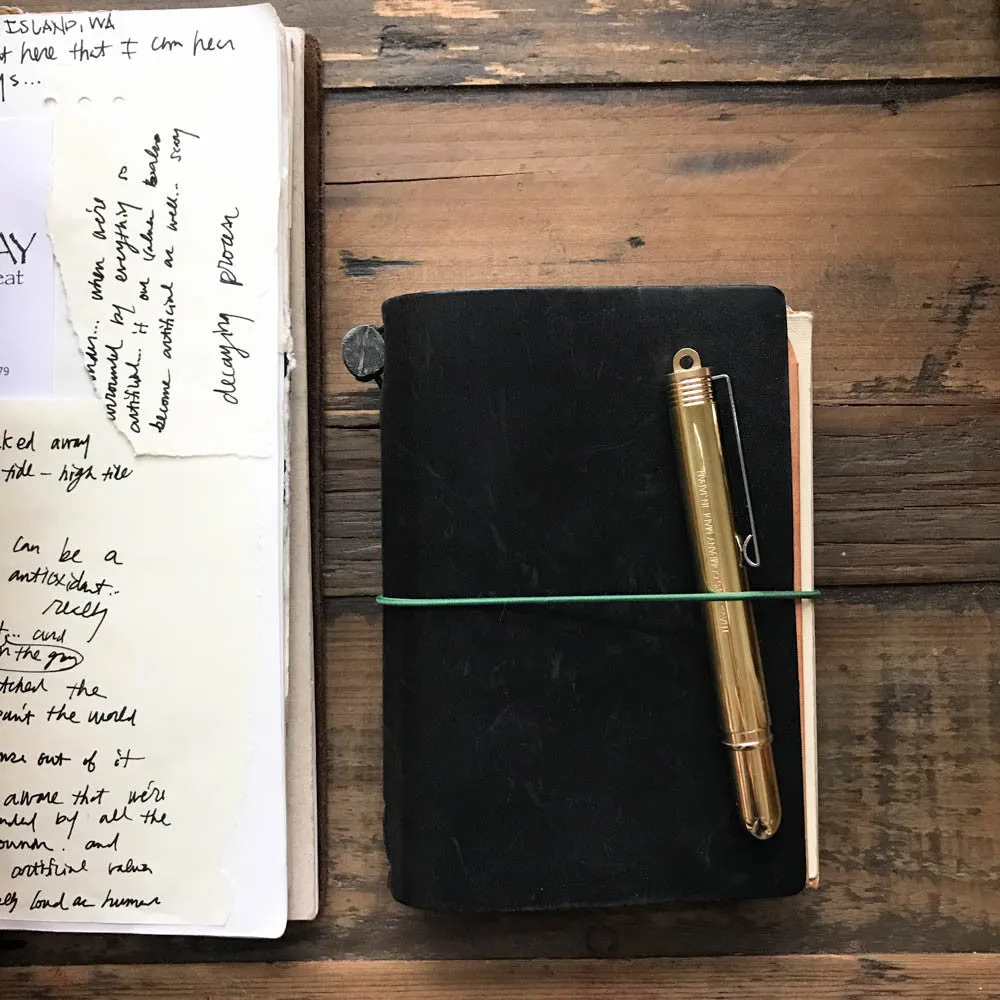 ISLAND, WA
here that I can hear
AY
eat
79
when we're
surrounded by everything so
artificial... if our values
become artificial as well... scary
decaying process
ked away
tide - high tide
can be a
antioxidant..
really
and
in the
tched the
paint the world
out of it
aware that we're
nded by all the
and
artificial values
loud as human
COMPANY MADE IN JAPAN